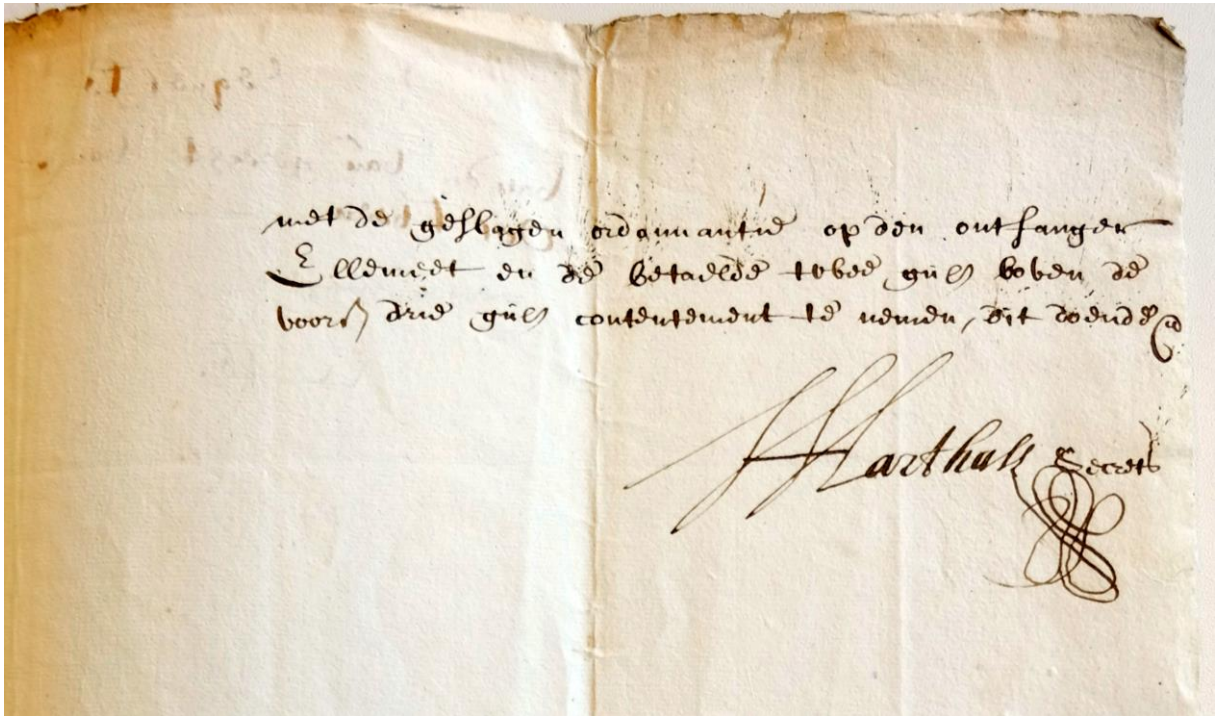 met de geslagen ordonnantie op den ontfanger
Ellemeet en de betaelde twee guls boven de
voors drie guls contentement te nemen, dit doende etc
Harthals Secrets